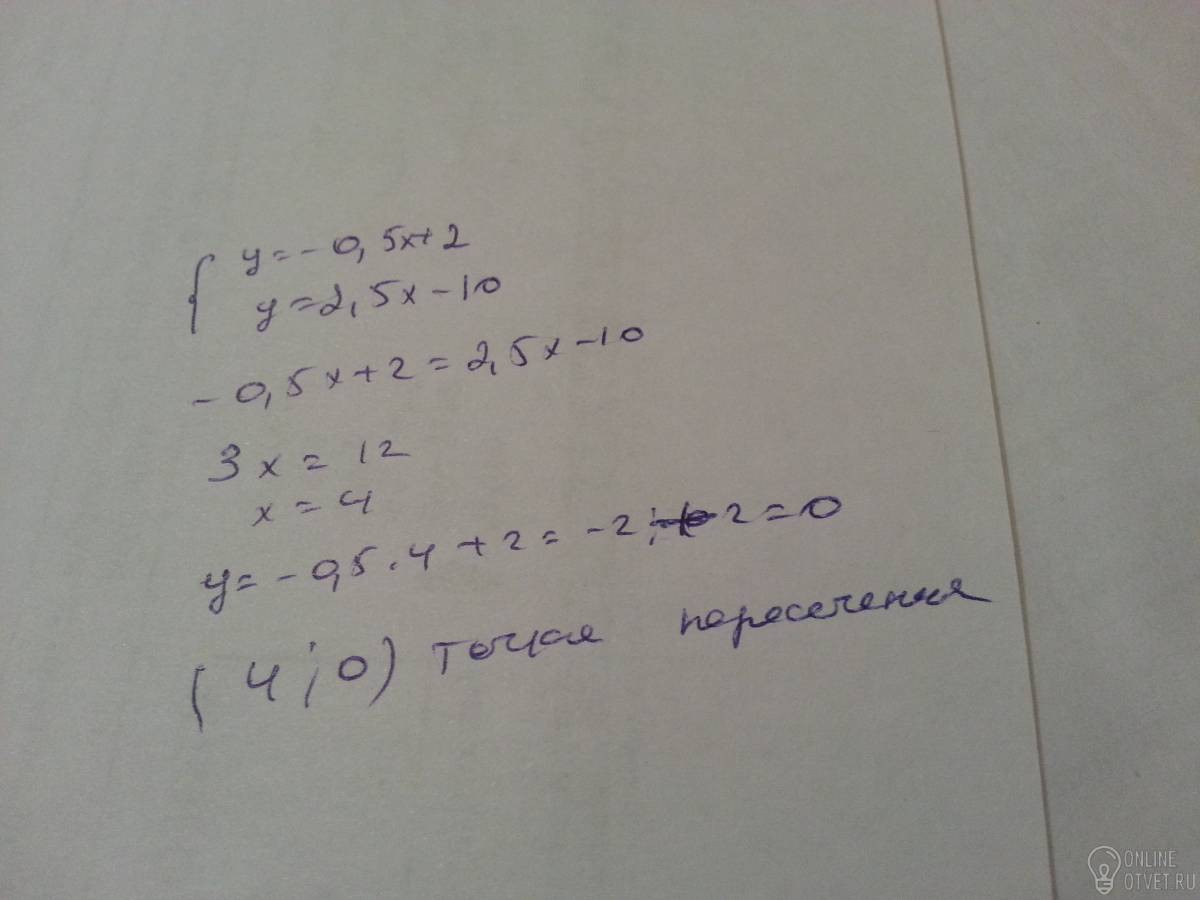 { y = - 0,5x + 2
y = 2,5x - 10
- 0,5x + 2 = 2,5x - 10
3x = 12
x = 4
y = - 0,5 · 4 + 2 = - 2 + 2 = 0
( 4 ; 0 ) точка пересечения
ONLINE
OTVET.RU